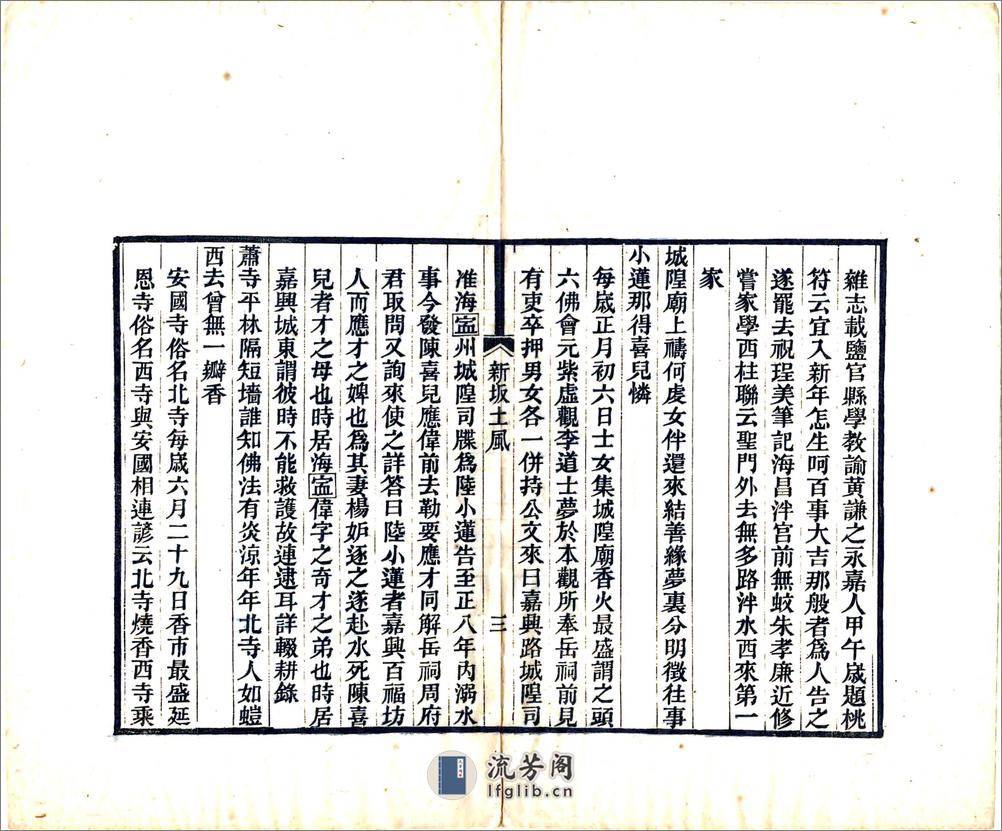 雜志載鹽官縣學教諭黃謙之永嘉人甲午歲題桃
符云宜入新年怎生呵百事大吉那般者爲人告之
遂罷去祝珵美筆記海昌泮宫前無蛟朱孝廉近修
嘗家學西柱聯云聖門外去無多路泮水西來第一
家
城隍廟上禱何虔女伴還來結善緣夢裏分明徵往事
小蓮那得喜兒憐
每歲正月初六日士女集城隍廟香火最盛謂之頭
六佛會元紫虛觀李道士夢於本觀所奉岳祠前見
有吏卒押男女各一併持公文來曰嘉興路城隍司
准海寍州城隍司牒爲陸小蓮告至正八年內溺水
事今發陳喜兒應偉前去勒要應才同解岳祠周府
君取問又詢來使之詳答曰陸小蓮者嘉興百福坊
人而應才之婢也爲其妻楊妒逐之遂赴水死陳喜
兒者才之母也時居海寍偉字之奇才之弟也時居
嘉興城東謂彼時不能救護故連逮耳詳輟耕錄
蕭寺平林隔短墻誰知佛法有炎涼年年北寺人如螘
西去曾無一瓣香
安國寺俗名北寺每歲六月二十九日香市最盛延
恩寺俗名西寺與安國相連諺云北寺燒香西寺乘
新坂土風
三
流芳阁
lfglib.cn